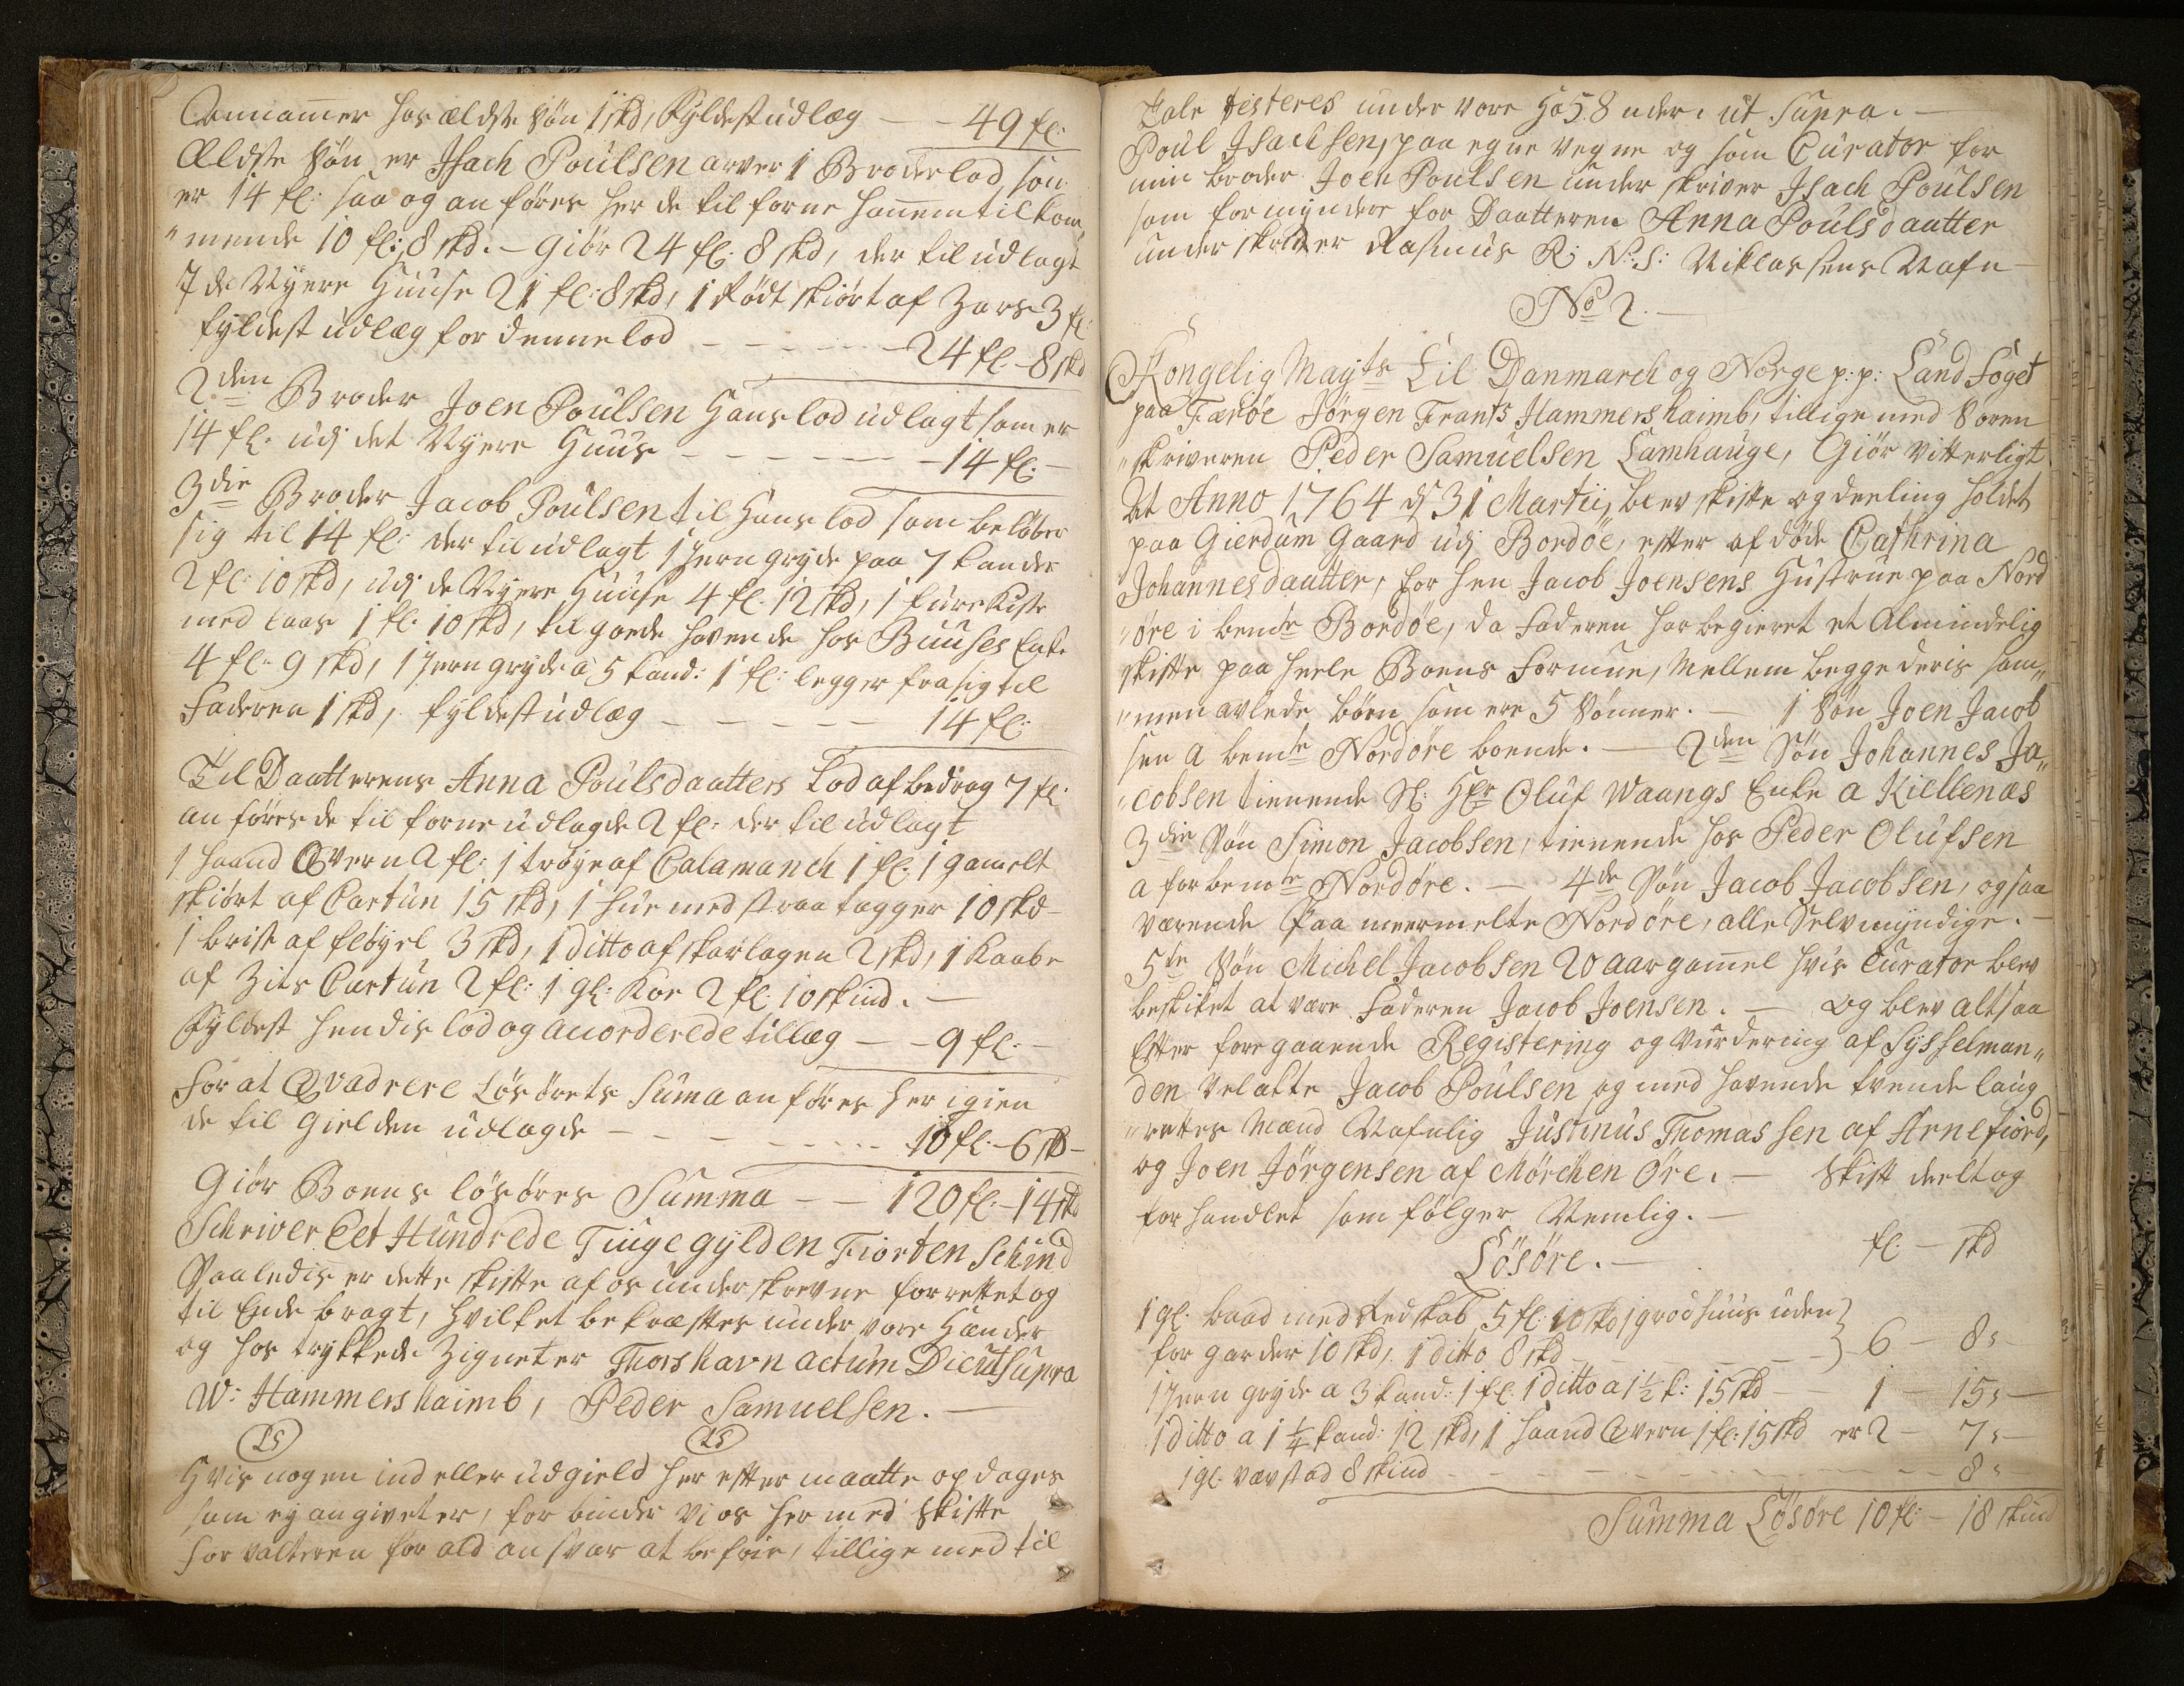 Annammer hos ældste Søn 1 skd, Fyldest udlæg — — 49 fl:
Ældste Søn er Jsach Poulsen arver 1 Broderlod, som
er 14 fl: saa og anføres her de tilforne hannem tilkom„
„mende 10 fl: 8 skd. — Giør 24 fl: 8 skd, der til udlagt
J de Nyere Huuse 21 fl: 8 skd, 1 Rødt skiørt af Zars 3 fl:
fyldest udlæg for denne lod — — — — — 24 fl — 8 skd
2den Broder Joen Poulsen Hans lod udlagt som er
14 fl. udj det Nyere Huus — — — — — — 14 fl: —
3die Broder Jacob Poulsen til Hans lod som beløber
sig til 14 fl: der til udlagt 1 Jerngryde paa 7 kander
2 fl: 10 skd, udj de Nyere Huuse 4 fl. 12 skd, 1 furekiste
med laas 1 fl. 10 skd, tilgoede havende hos Buuses Enke
4 fl. 9 skd, 1 Jerngryde a 5 kand: 1 fl: legger fra sig til
Faderen 1 skd, fyldest udlæg — — — — — 14 fl:
Til Daatterens Anna Poulsdaatters Lod af bedrag 7 fl:
anføres de tilforne udlagde 2 fl: der til udlagt
1 haand Qvern 2 fl: 1 trøye af Calamanch 1 fl. 1 gamelt
skiørt af Cartun 15 skd, 1 hue med straa tagger 10 skd —
1 brist af fløyel 3 skd, 1 ditto af skarlagen 2 skd, 1 Kaabe
af Zits Cartun 2 fl: 1 gl: Koe 2 fl: 10 skind. —
Fyldest hendis lod og accorderede tillæg — — 9 fl: —
For at Qvadrere Løsørets Suma anføres her igien
de til Gielden udlagde — — — — — — 10 fl — 6 sk —
Giør Boens løsøres Summa — — 120 fl: — 14 skd
Schriver Eet Hundrede Tiuge gylden Fiorten Schind
Saaledis er dette skifte af os underskrevne forrettet og
til Ende bragt, hvilket bekræftes under vore Hænder
og hos trykkede Zigneter Thorshavn actum Die ut supra
W: Hammershaimb, Peder Samuelsen. —
LS LS
Hvis nogen ind eller udgield her efter maatte opdages
som ej angivet er, forbinder vi os her med skifte
forvalteren for ald ansvar at befrie, tillige med til
Tale testeres under vore Hænder. ut supra. —
Poul Jsachsen, paa egne vegne og som Curator for
min broder Joen Poulsen underskriver Jsach Poulsen
som formyndere for Daatteren Anna Poulsdaatter
underskriver Rasmus R: N: S: Niklassens Nafn —
No 2. —
Kongelig Mayts Til Danmarch og Norge p: p: Land Foget
paa Færøe Jørgen Frants Hammershaimb, tillige med Soren„
„skriveren Peder Samuelsen Lamhauge, Giør vitterligt
At Anno 1764 dj 31 Martij, blev skifte og deeling holdet
paa Gierdum Gaard udj Bordøe, efter afdøde Cathrina
Johannesdaatter, for hen Jacob Joensens Hustrue paa Nord
„øre i bemte Bordøe, da Faderen har begieret et Almindelig
skifte paa heele Boens Formue, Mellem begge deris sam„
„menavlede børn som ere 5 Sønner. — 1 Søn Joen Jacob
sen a bemte Nordøre boende. — 2den Søn Johannes Ja„
„cobsen tienende Sl: Hr Oluf Waangs Enke a Kiellenæs
3die Søn Simon Jacobsen, tienende hos Peder Olufsen
a forbemte Nordøre. — 4de Søn Jacob Jacobsen, ogsaa
værende paa meermelte Nordøre, alle Selvmyndige. —
5te Søn Michel Jacobsen 20 aar gammel hvis Curator blev
beskiket at være Faderen Jacob Joensen. — Og blev altsaa
Efter foregaaende Registering og Vurdering af Sysselman„
den Velagte Jacob Poulsen og med havende tvende laug
„rettes Mænd Nafnlig Justinus Thomassen af Arnefiord,
og Joen Jørgensen af Mørchen Øre. — Skift deelt og
forhandlet som følger Nemlig. —
Løsøre. — fl: — skd
1 gl. baad med Redskab 5 fl: 10 skd 1 grodhuus uden }
for garder 10 skd, 1 ditto 8 skd — — — — } 6 — 8 s —
1 Jern gryde a 3 kand: 1 fl. 1 ditto a 1½ k: 15 skd — 1 — 15 s —
1 ditto a 1¼ kand: 12 skd, 1 haand Qvern 1 fl: 15 skd er 2 — 7 s —
1 gl. vævstad 8 skind — — — — — — — 8 s
Summa Løsøre 10 fl: — 18 skind